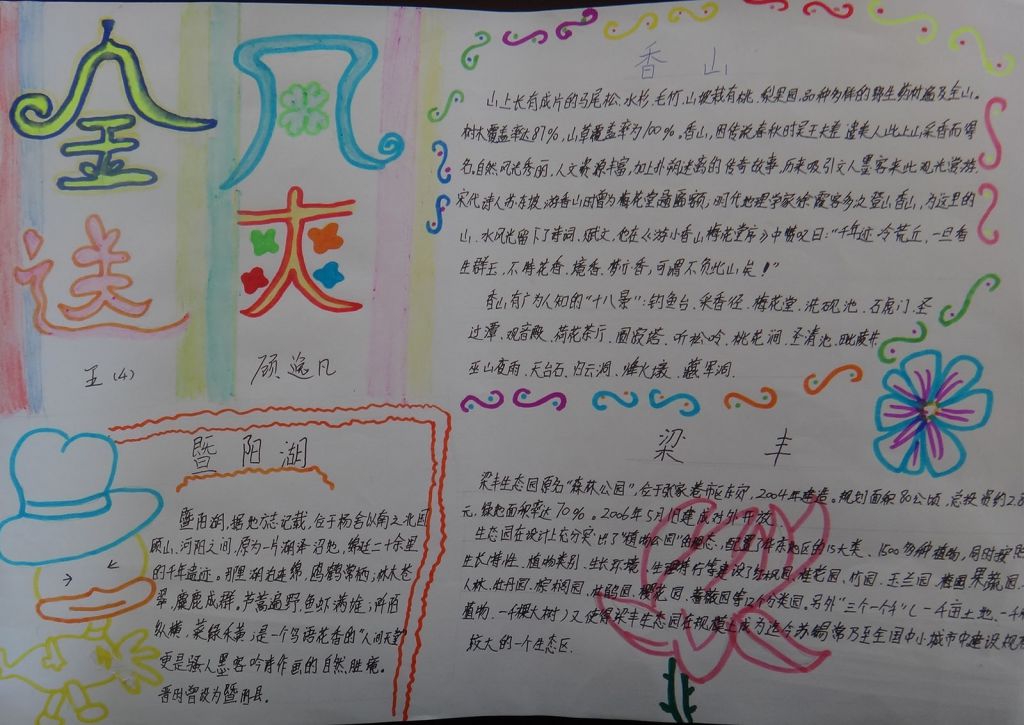 金风
送爽
五(4) 顾逸凡
香 山
山上长有成片的马尾松、水杉、毛竹,山坡栽有桃、梨果园,品种多样的野生药材遍及全山。
树木覆盖率达87%,山草覆盖率为100%。香山,因传说春秋时吴王夫差遣美人此上山采香而得
名。自然风光秀丽,人文资源丰富,加上扑朔迷离的传奇故事,历来吸引文人墨客来此观光赏游。
宋代诗人苏东坡游香山时曾为梅花堂题匾额;明代地理学家徐霞客多次登山香山,为这里的
山、水风光留下了诗词、赋文,他在《游小香山梅花堂序》中赞叹曰:“千年迹冷荒丘,一旦香
生群玉,不特花香、境香、梦亦香,可谓不负此山矣!”
香山有广为人知的“十八景”:钓鱼台、采香径、梅花堂、洗砚池、石虎门、圣
过潭、观音殿、荷花茶厅、圆寂塔、听松吟、桃花涧、圣清池、毗陵井、
巫山夜雨、天台石、白云洞、烽火墩、藏军洞。
暨 阳 湖
暨阳湖,据地方志记载,位于杨舍以南之北国
顾山、河阳之间,原为一片湖泽沼地,绵延二十余里
的千年遗迹。那里湖泊连绵,鸥鹤常栖;林木苍
翠,麋鹿成群,芦蒿遍野鱼虾满滩;阡陌
纵横,菜绿禾黄;是一个鸟语花香的“人间天堂”
更是骚人墨客吟诗作画的自然胜境。
晋时曾设为暨阳县。
梁 丰
梁丰生态园原名“森林公园”,位于张家港市区东郊,2004年建造。规划面积80公顷,总投资约2.8
元,绿地面积率达70%。2006年5月1日建成对外开放。
生态园在设计上充分突出了“植物公园”的概念,配置了华东地区的15大类、1500多种植物,同时按照
生长特性、植物类别、生长环境、生理特行等建设了红枫园、桂花园、竹园、玉兰园、桂圆果蔬园、
人林、牡丹园、棕榈园、杜鹃园、樱花园、蔷薇园等12个分类园。另外“三个一个千”(一千亩土地、一千种
植物、一千棵大树)又使得梁丰生态园在规模上成为迄今苏锡常乃至全国中小城市中建设规模
较大的一个生态区。